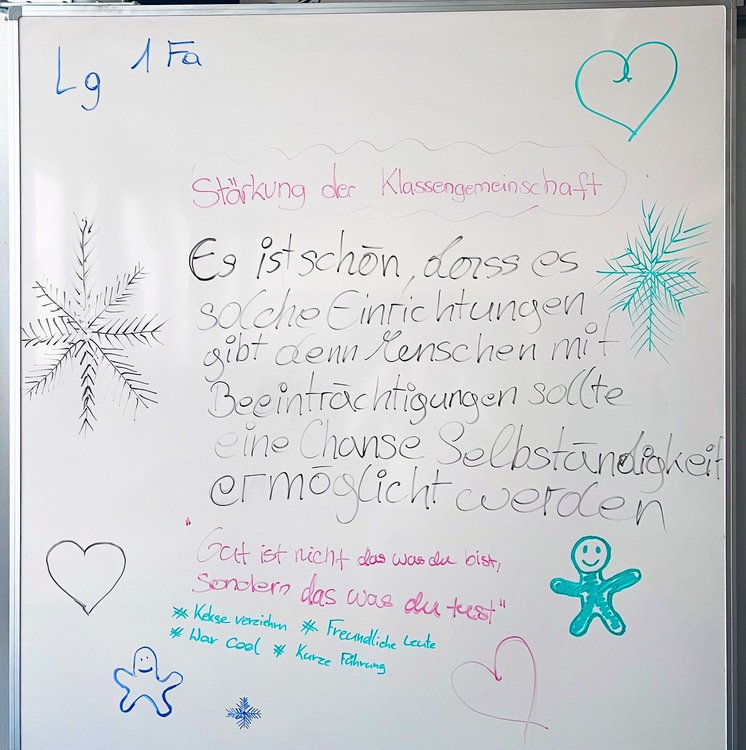 Lg 1 Fa
Stärkung der Klassengemeinschaft
Es ist schön, dass es
solche Einrichtungen
gibt denn Menschen mit
Beeinträchtigungen sollte
eine Chanse Selbständigkeit
ermöglicht werden
"Gut ist nicht das was du bist,
sondern das was du tust"
# Kekse verziehrn # Freundliche Leute
# War cool # Kurze Führung